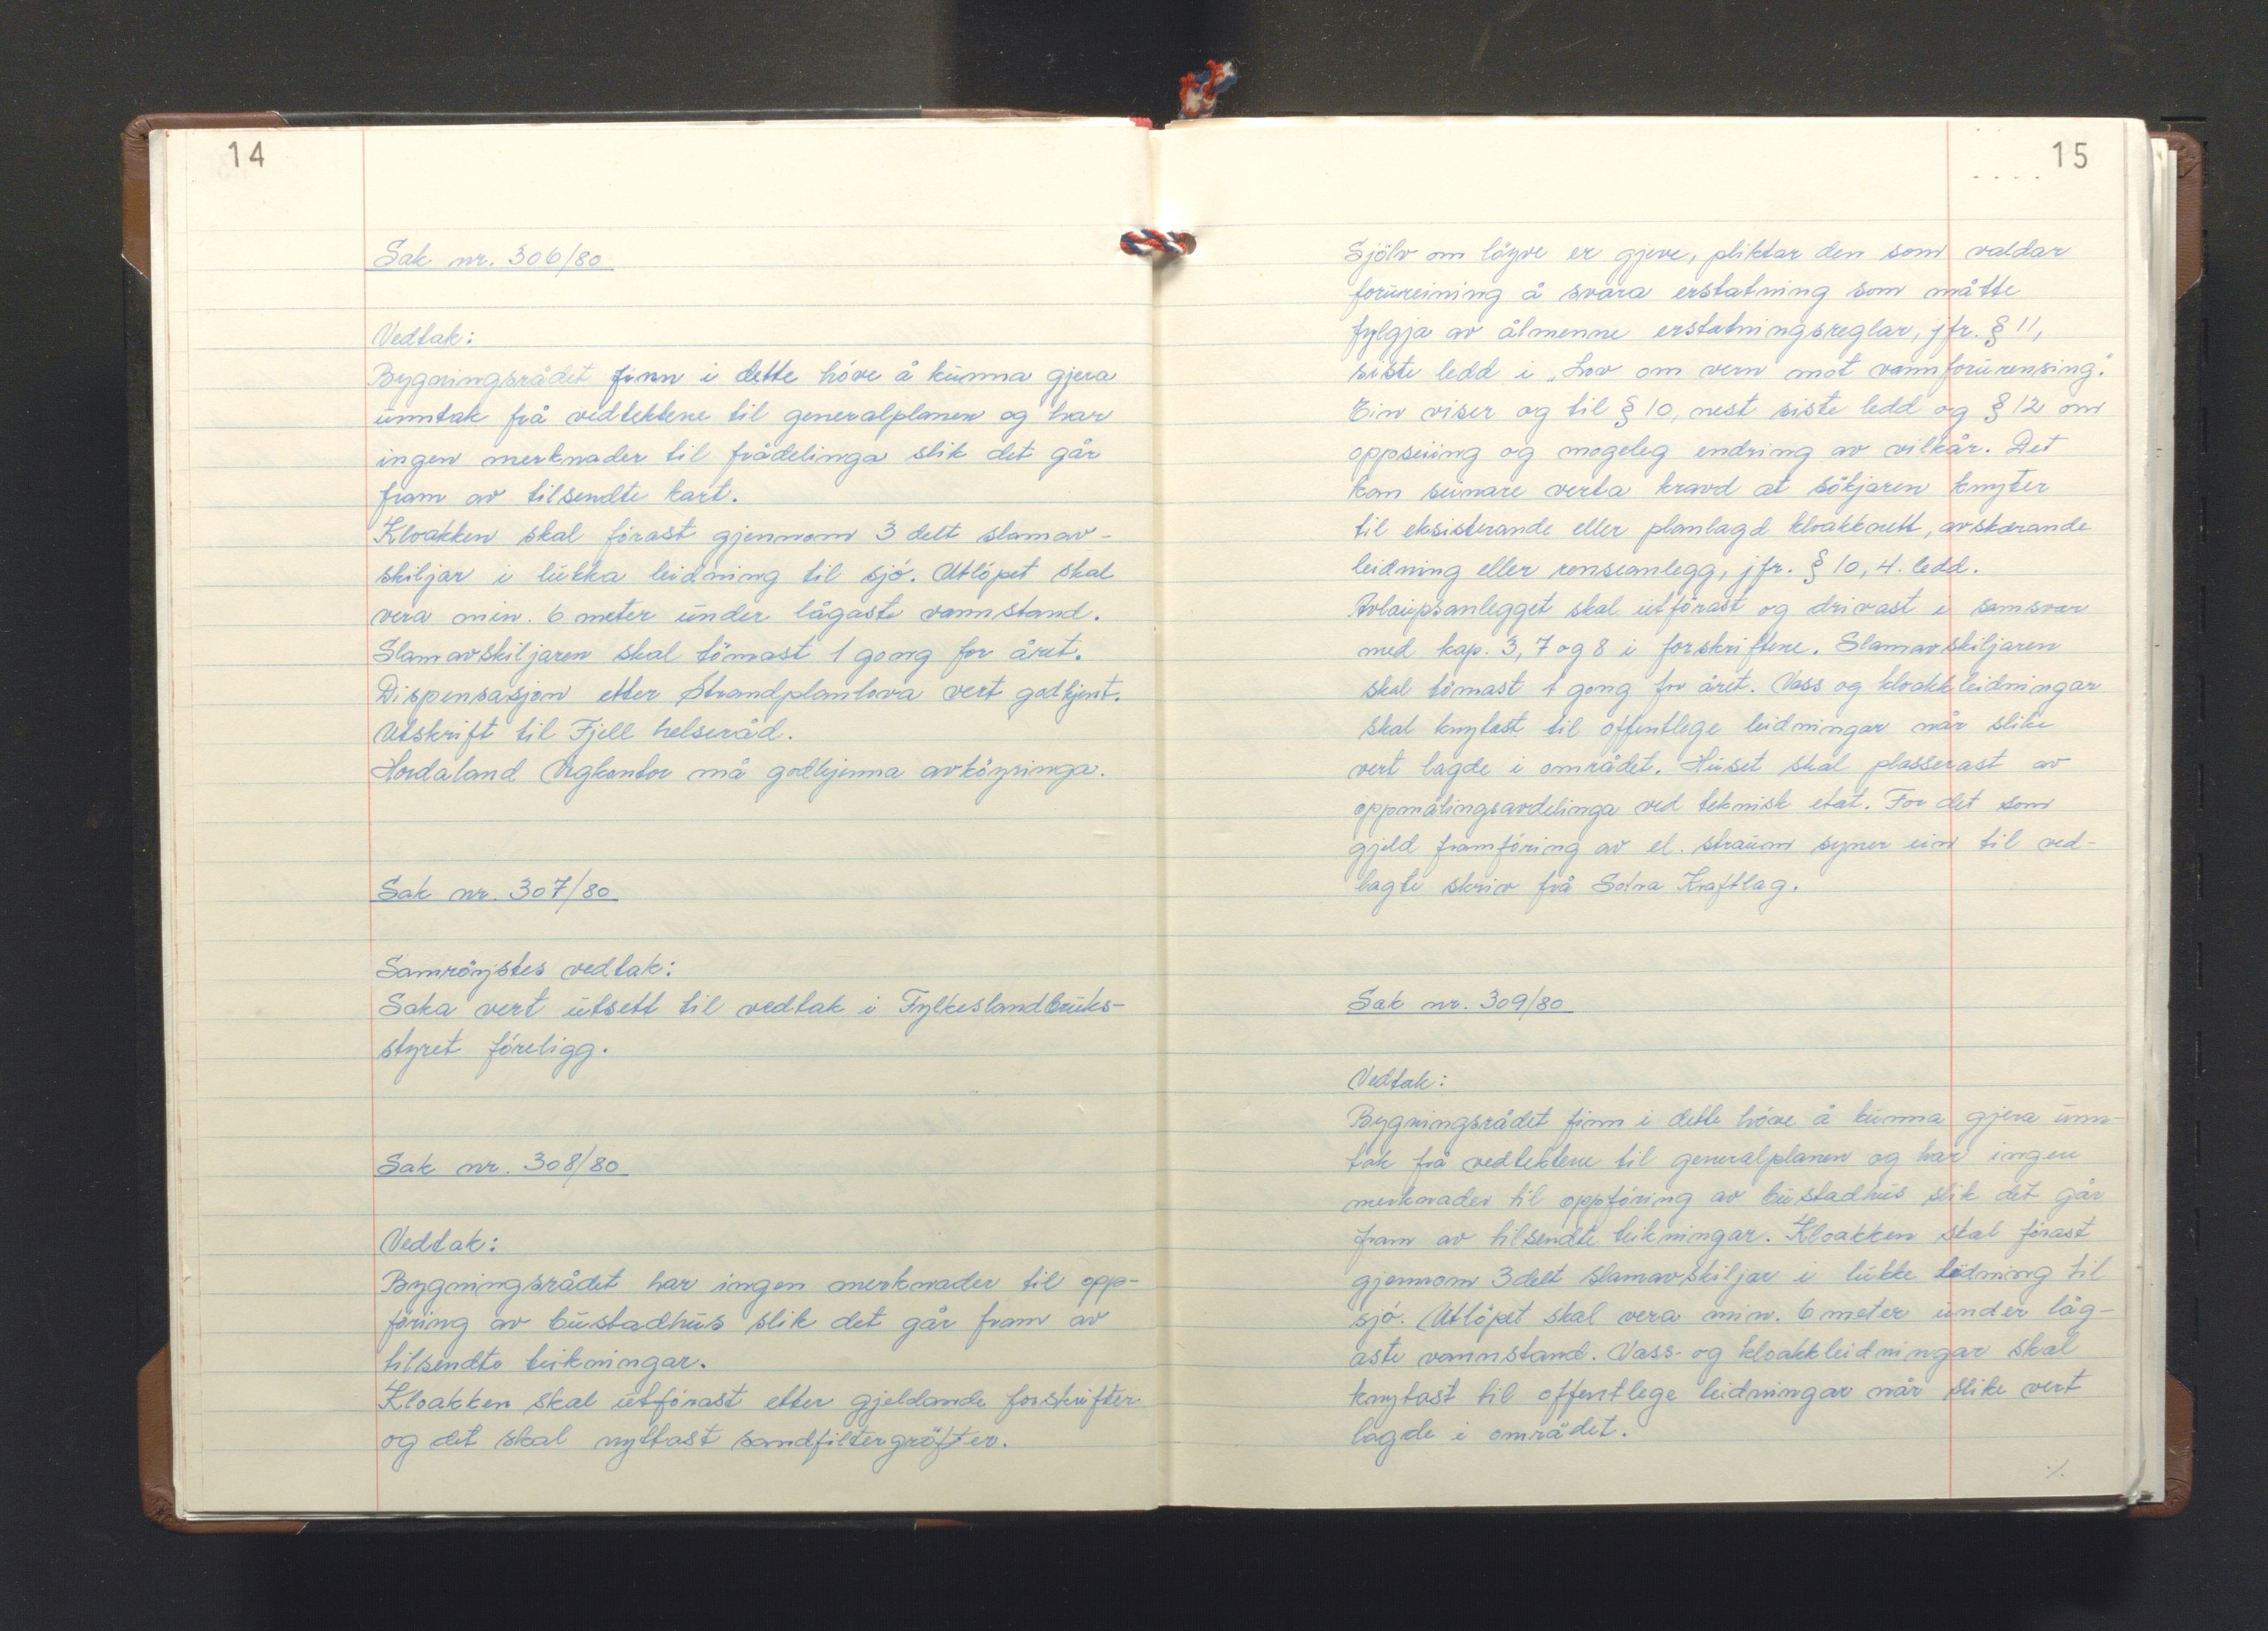 14
Sak nr. 306/80
Vedtak:
Bygningsrådet finn i dette höve å kunna gjera
unntak frå vedtektene til generalplanen og har
ingen merknader til frådelinga slik det går
fram av tilsendte kart.
Kloakken skal förast gjennom 3 delt slamav-
skiljar i lukka leidning til sjö. Utlöpet skal
vera min. 6 meter under lågaste vannstand.
Slamavskiljaren skal tömast 1 gong for året.
Dispensasjon etter Strandplanlova vert godkjent.
Utskrift til Fjell helseråd.
Hordaland Vegkontor må godkjenna avköyringa.
Sak nr. 307/80
Samröystes vedtak:
Saka vert utsett til vedtak i Fylkeslandbruks-
styret föreligg.
Sak nr. 308/80
Vedtak:
Bygningsrådet har ingen merknader til opp-
föring av bustadhus slik det går fram av
tilsendte teikningar.
Kloakken skal utförast etter gjeldande forskrifter
og det skal nyttast sandfiltergröfter.
15
Sjölv om löyve er gjeve, pliktar den som valdar
forureining å svara erstatning som måtte
fylgja av ålmenne erstatningsreglar, jfr. § 11,
siste ledd i „Lov om vern mot vannforurensing."
Ein viser og til § 10, nest siste ledd og § 12 om
oppseiing og mogeleg endring av vilkår. Det
kan seinare verta kravd at sökjaren knyter
til eksisterande eller planlagd kloakknett, avskjerande
leidning eller renseanlegg, jfr. § 10, 4. ledd.
Avlaupsanlegget skal utförast og drivast i samsvar
med kap. 3, 7 og 8 i forskriftene. Slamavskiljaren
skal tömast 1 gong for året. Vass og kloakkleidningar
skal knytast til offentlege leidningar når slike
vert lagde i området. Huset skal plasserast av
oppmålingsavdelinga ved teknisk etat. For det som
gjeld framföring av el. straum syner ein til ved-
lagte skriv frå Sotra Kraftlag.
Sak nr. 309/80
Vedtak:
Bygningsrådet finn i dette höve å kunna gjera unn-
tak frå vedtektene til generalplanen og har ingen
merknader til oppföring av bustadhus slik det går
fram av tilsendte teikningar. Kloakken skal förast
gjennom 3 delt slamavskiljar i lukke leidning til
sjö. Utlöpet skal vera min. 6 meter under låg-
aste vannstand. Vass- og kloakkleidningar skal
knytast til offentlege leidningar når slike vert
lagde i området.
./.